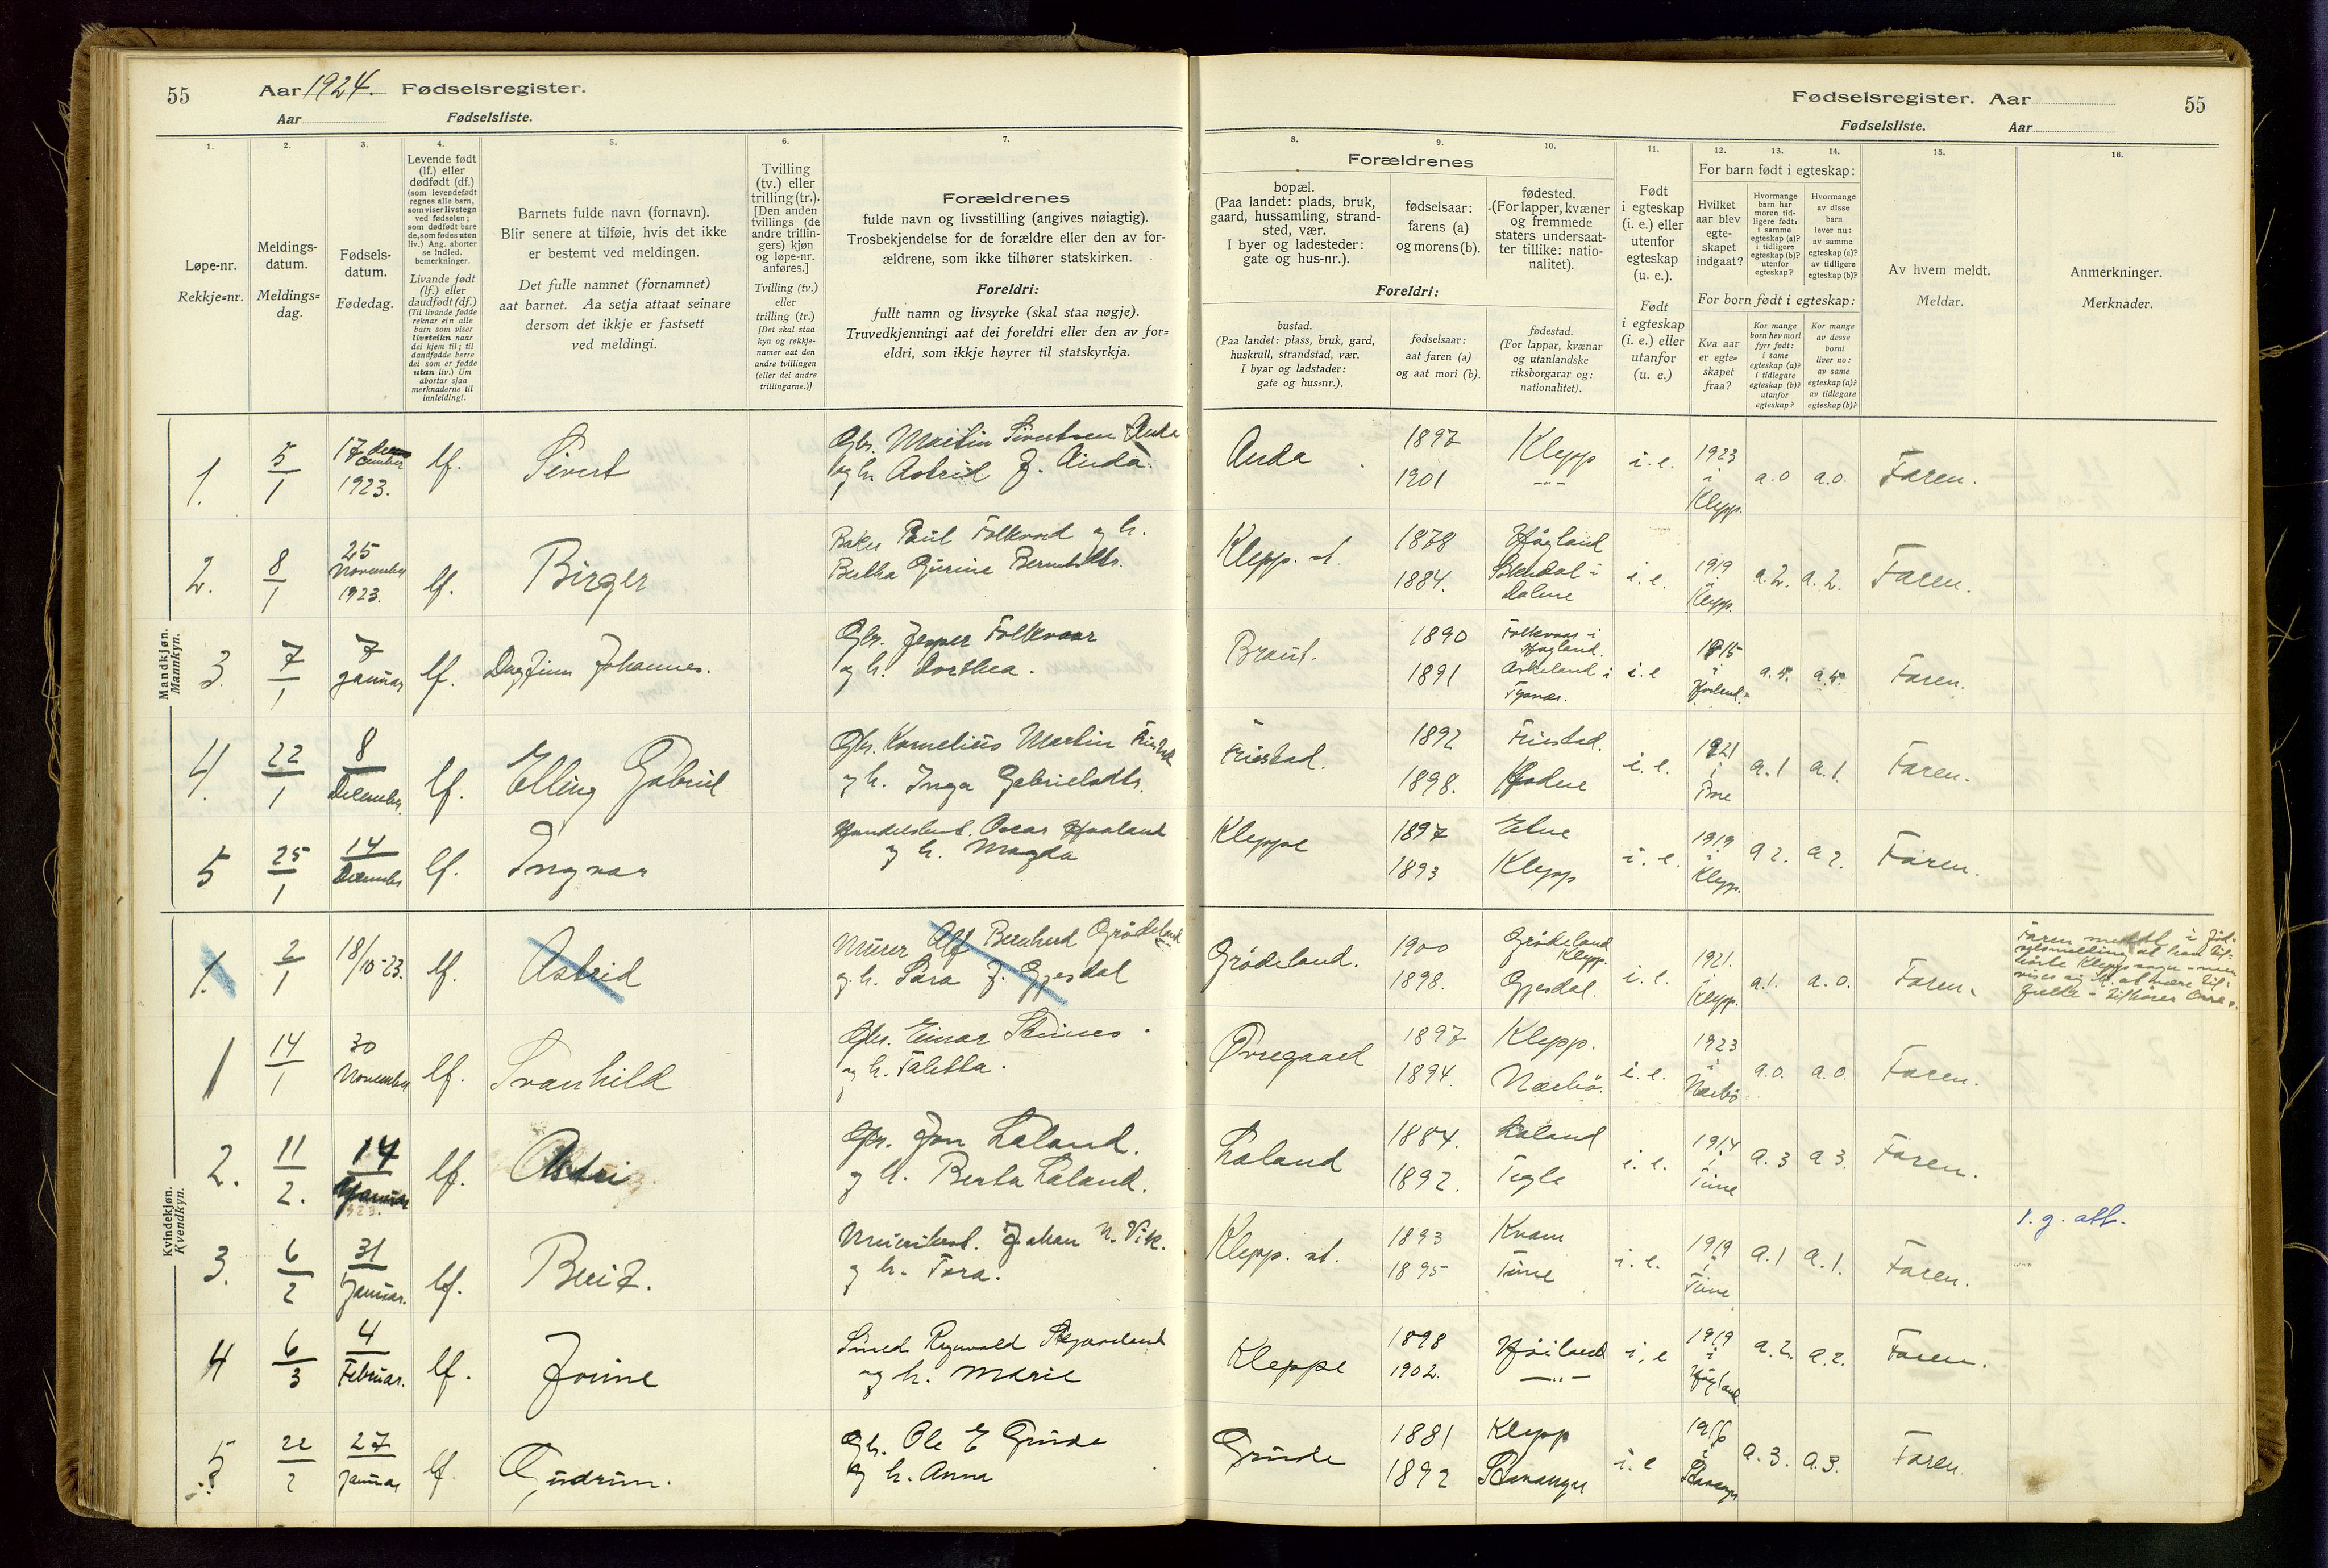 55
Aar 1924. Fødselsregister.
Aar Fødselsliste.
1. 2. 3. 4. 5. 6. 7.
Løpe-nr.
Rekkje=nr.
Meldings-
datum.
Meldings=
dag.
Fødsels-
datum.
Fødedag.
Levende født
(lf.) eller
dødfødt (df.)
(som levendefødt
regnes alle barn,
som viser livstegn
ved fødselen;
som dødfødt bare
de, som fødes uten
liv.) Ang. aborter
se indled.
bemerkninger.
Livande født
(lf.) eller
daudfødt (df.)
(Til livande fødde
reknar ein alle
barn som viser
livsteikn naar
dei kjem til; til
daudfødde berre
dei som er fødde
utan liv.) Um
abortar sjaa
merknaderne til
innleidingi.
Barnets fulde navn (fornavn).
Blir senere at tilføie, hvis det ikke
er bestemt ved meldingen.
Det fulle namnet (fornamnet)
aat barnet. Aa setja attaat seinare
dersom det ikkje er fastsett
ved meldingi.
Tvilling
(tv.) eller
trilling (tr.).
[Den anden
tvillings (de
andre trillin-
gers) kjøn
og løpe-nr.
anføres.]
Tvilling (tv.)
eller
trilling (tr.)
[Det skal staa
kyn og rekkje-
numer aat den
andre tvillingen
(eller dei andre
trillingarne.)]
Forældrenes
fulde navn og livsstilling (angives nøiagtig).
Trosbekjendelse for de forældre eller den av for-
ældrene, som ikke tilhører statskirken.
Foreldri:
fullt namn og livsyrke (skal staa nøgje).
Truvedkjenningi aat dei foreldri eller den av for=
eldri, som ikkje høyrer til statskyrkja.
Mandkjøn.
Mannkyn.
1. 5/1 17 december 1923. lf. Sivert
Gbr. Martin Sivertsen Anda
og h. Astrid J. Anda.
2. 8/1 25 November 1923. lf. Birger
Baker Paul Folkvord og h.
Bertha Gurine Berntsdtr.
3. 7/1 7 januar lf. Dagfinn Johannes.
Gbr. Jesper Folkvoar
og h. Dorthea.
4. 22/1 8 December. lf. Elling Gabriel
Gbr. Kornelius Martin Friestad
og h. Inga Gabrielsdtr.
5 25/1 14 December lf. Ingvar
Handelsbest. Oscar Haaland
og h. Magda
Kvindekjøn.
Kvendkyn.
1. 2/1 18/10-23. lf. Astrid
Murer Alf Bernhard Grödeland
og h. Sara J. Gjesdal
1 14/1 30 November lf. Svanhild
Gbr. Einar Stenes.
og h. Taletta.
2. 11/2. 14 Januar lf. Astri
Gbr. Jon Laland.
og h. Berta Laland.
3. 6/2 31 Januar. lf. Berit.
Meieribest. Johan N. Vik.
og h. Tora.
4 6/3 4 Februar. lf. Jorine
Smed Ragnvald Skjæveland
og h. Marie
5 22/2 27 januar lf. Gudrun.
Gbr. Ole E Grude
og h. Anna
Fødselsregister. Aar 55
Fødselsliste. Aar
8. 9. 10. 11. 12. 13. 14. 15. 16.
Forældrenes
bopæl.
(Paa landet: plads, bruk,
gaard, hussamling, strand-
sted, vær.
I byer og ladesteder:
gate og hus-nr.).
fødselsaar:
farens (a)
og morens (b).
fødested.
(For lapper, kvæner
og fremmede
staters undersaat-
ter tillike: natio-
nalitet).
Foreldri:
bustad.
(Paa landet: plass, bruk, gard,
huskrull, strandstad, vær.
I byar og ladstader:
gate og hus=nr.).
fødselsaar:
aat faren (a)
og aat mori (b).
fødestad.
(For lappar, kvænar
og utanlandske
riksborgarar og:
nationalitet).
Født
i egteskap
(i. e.) eller
utenfor
egteskap
(u. e.).
Født
i egteskap
(i. e.) eller
utanfor
(u. e.)
For barn født i egteskap:
Hvilket
aar blev
egte-
skapet
indgaat?
Hvormange
barn har
moren tid-
ligere født:
i samme
egteskap (a)?
i tidligere
egteskap (b)?
utenfor
egteskap?
Hvormange
av disse
barn
lever nu:
av samme
egteskap (a)?
av tidligere
egteskap (b)?
For born født i egteskap:
Kva aar
er egte=
skapet
fraa?
Kor mange
born hev mori
fyrr født:
i same
egteskap (a)?
i tidlegare
egteskap (b)?
utanfor
egteskap?
Kor mange
av desse
borni
liver no:
av same
egteskap (a)?
av tidlegare
egteskap (b)?
Av hvem meldt.
Meldar.
Anmerkninger.
Merknader.
Anda 1897 1901 Klepp -"- i. e. 1923 i Klepp. a.0 a.0. Faren.
Klepp. st. 1878 1884. Høgland Sokndal i Dalene i. e. 1919 i Klepp. a.2. a.2. Faren.
Braut. 1890 1891 Folkvoar i Høgland. Askeland i i. e 1915 i a.4. a.4. Faren.
Friestad. 1892 1898. Friestad. i. e. 1921 i a.1 a.1. Faren.
Kleppe 1897 1893 Etne Klepp i. e. 1919 i Klepp. a 2. a 2. Faren.
Grödeland. 1900 1898. Grödeland Klepp. Gjesdal. i. e. 1921. i Klepp. a.1. a.0. Faren.
Faren meldte i föd-
selsmelding at han til-
hörte Klepp sogn - men
viser sig ei at være til-
fælde - tilhörer Orre s.
Orregaard 1897 1894. Klepp. Nærbö. i. e. 1923 i Nærbö a.0. a.0. Faren.
Laland 1884. 1892. Laland Tegle i. e. 1914 i Time a.3 a 3. Faren.
Klepp. st. 1893 1895 Kvam Time i. e. 1919 i Time a.1 a.1. Faren.
1. g. att.
Kleppe 1898 1902. Høiland -"- i. e 1919 i Høgland a.2. a.2. Faren.
Grude 1881 1892 Klepp Stavanger i. e 1916 i Stavanger a.3. a.3. Faren.